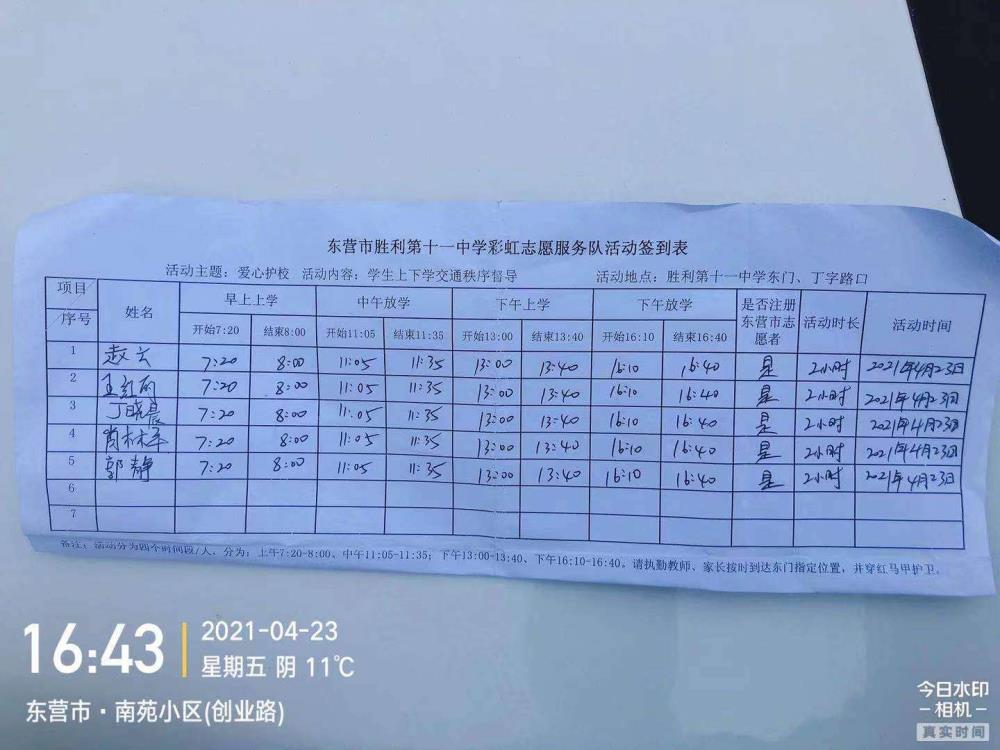 东营市胜利第十一中学彩虹志愿服务队活动签到表
活动主题：爱心护校 活动内容：学生上下学交通秩序督导 活动地点：胜利第十一中学东门、丁字路口
项目 序号 姓名 早上上学 中午放学 下午上学 下午放学 是否注册东营市志愿者 活动时长 活动时间
开始7:20 结束8:00 开始11:05 结束11:35 开始13:00 结束13:40 开始16:10 结束16:40
1 赵云 7:20 8:00 11:05 11:35 13:00 13:40 16:10 16:40 是 2小时 2021年4月23日
2 王红丽 7:20 8:00 11:05 11:35 13:00 13:40 16:10 16:40 是 2小时 2021年4月23日
3 丁晓晨 7:20 8:00 11:05 11:35 13:00 13:40 16:10 16:40 是 2小时 2021年4月23日
4 肖林 7:20 8:00 11:05 11:35 13:00 13:40 16:10 16:40 是 2小时 2021年4月23日
5 郭静 7:20 8:00 11:05 11:35 13:00 13:40 16:10 16:40 是 2小时 2021年4月23日
6
7
备注：活动分为四个时间段/人，分为：上午7:20-8:00、中午11:05-11:35；下午13:00-13:40、下午16:10-16:40。请执勤教师、家长按时到达东门指定位置，并穿红马甲护卫。
16:43 2021-04-23
星期五 阴 11℃
东营市·南苑小区(创业路)
今日水印
相机
真实时间